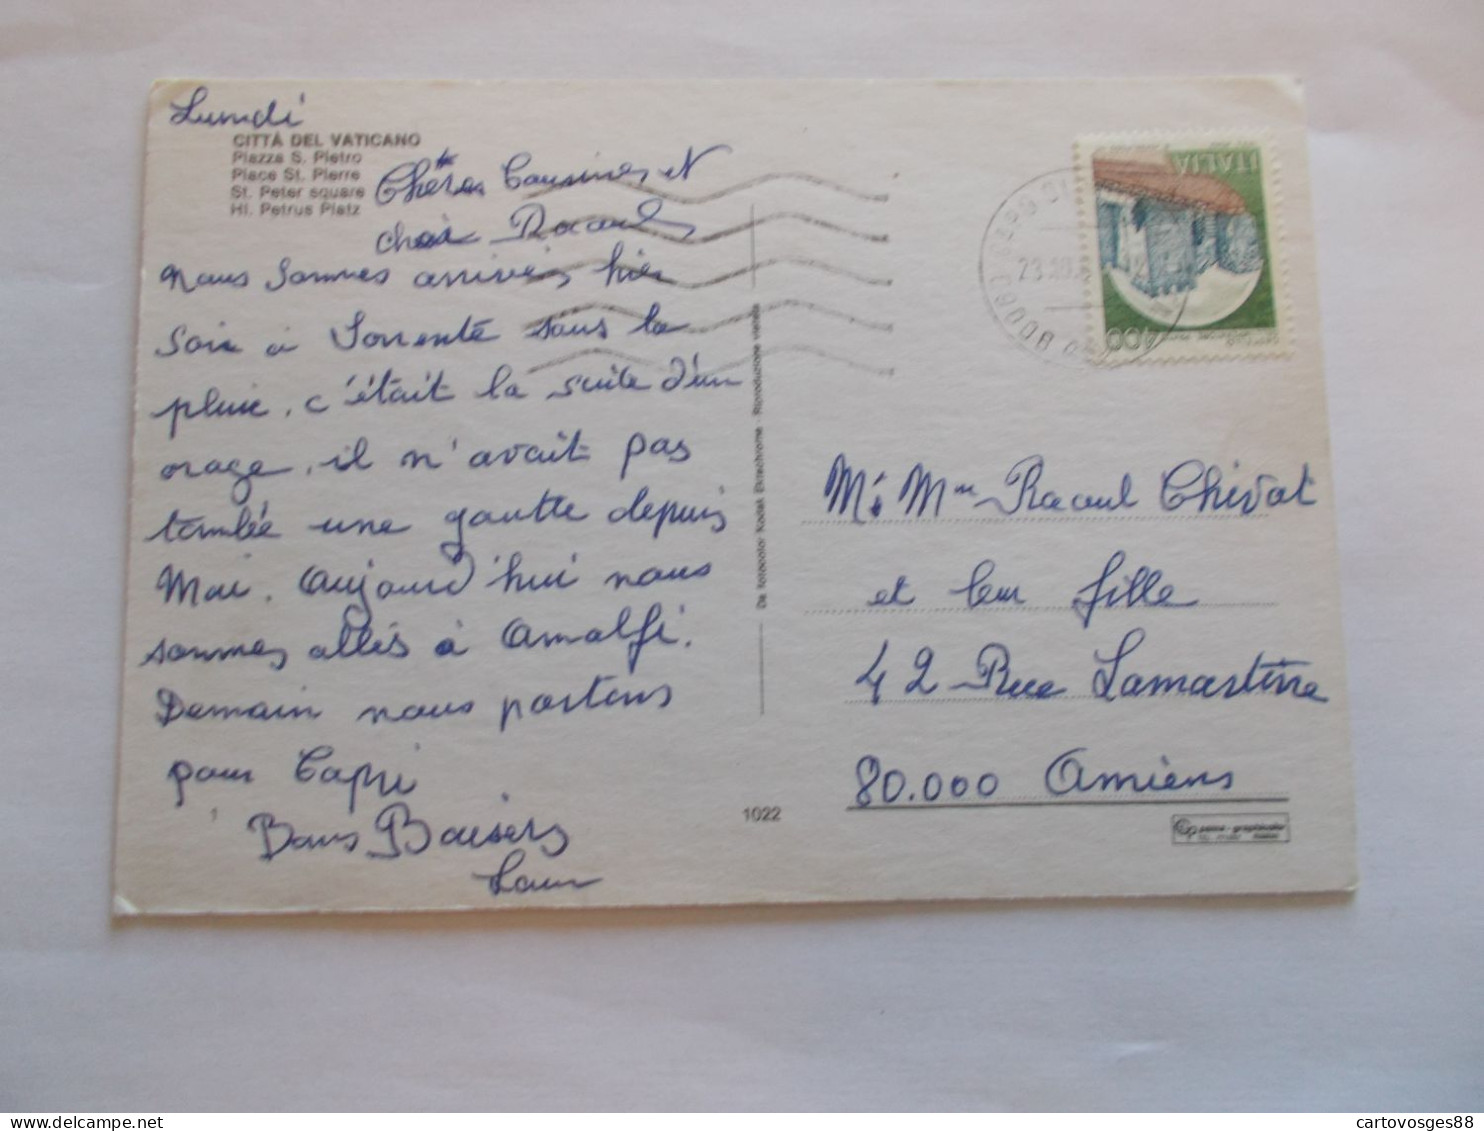 Lundi
CITTÀ DEL VATICANO
Piazza S. Pietro
Place St. Pierre
St. Peter square
Hl. Petrus Platz
Chères Cousines et
cher Raoul
Nous sommes arrivés hier
soir à Sorrente sous la
pluie, c'était la suite d'un
orage, il n'avait pas
tombée une goutte depuis
Mai. Aujourd'hui nous
sommes allés à Amalfi.
Demain nous partons
pour Capri
Bons Baisers
1
1022
Da fotocolor Kodak Ektachrome - Riproduzione vietata
ITALIA
400
80061
23.10.
M. Mme Raoul Chivot
et leur fille
42 Rue Lamartine
80.000 Amiens
cartovosges88